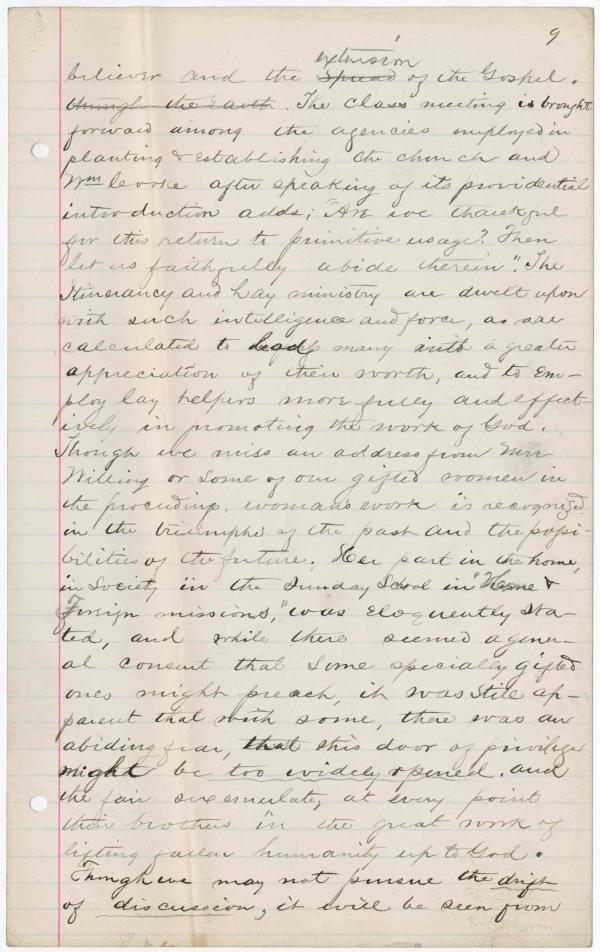 9
extension
believer and the Spread of the Gospel.
through the Earth. The class meeting is brought
forward among the agencies employed in
planting & establishing the church and
Wm Cooke after speaking of its providential
introduction adds; "Are we thankful
for this return to primitive usage? Then
let us faithfully abide therein". The
Itinerancy and Lay ministry are dwelt upon
with such intelligence and force, as are
calculated to lead many into a greater
appreciation of their worth, and to Em-
ploy lay helpers more fully and effect-
ively in promoting the work of God.
Though we miss an address from Mrs
Willing or some of our gifted women in
the proceedings. womans work is recognized
in the triumphs of the past and the possi-
bilities of the future. Her part in the home,
in Society in the Sunday School in "Home &
Foreign missions," was Eloquently sta-
ted, and while there seemed a gener-
al consent that some specially gifted
ones might preach, it was still ap-
parent that with some, there was an
abiding fear, that this door of privilege
might be too widely opened. and
the fair sex emulate, at every point
their brothers in the great work of
lifting fallen humanity up to God.
Though we may not pursue the drift
of discussion, it will be seen from